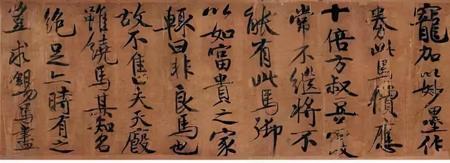 寵加以妙墨作
券此馬價應
十倍方叔豆羹
常不繼將不
能有此馬御
以如富貴之家
輒曰非良馬也
故不售夫天廄
雖饒馬其知名
絕足亦時有之
豈求錫馬盡